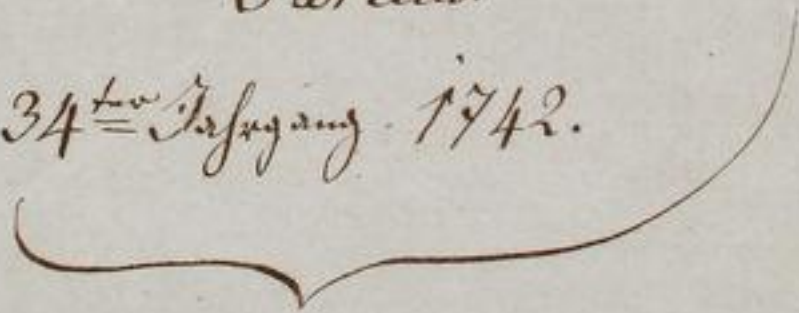 34ter Jahrgang. 1742.